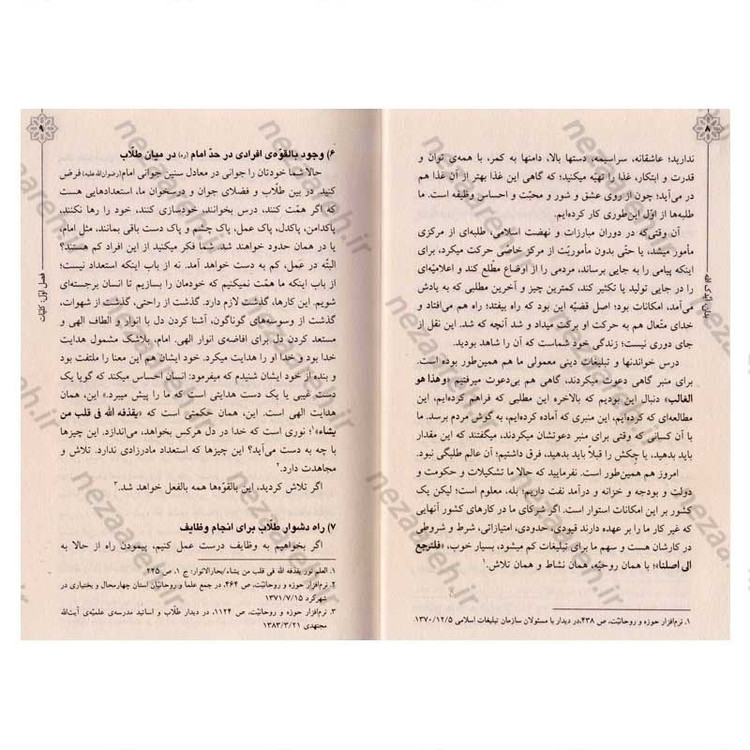 ۸
ندارید؛ عاشقانه، سراسیمه، دستها بالا، دامنها به کمر، با همه‌ی توان و
قدرت و ابتکار، غذا را تهیّه میکنید؛ که گاهی این غذا بهتر از آن غذا هم
در می‌آید؛ چون از روی عشق و شور و محبّت و احساس وظیفه است. ما
طلبه‌ها از اوّل این‌طوری کار کرده‌ایم.
آن وقتی‌که در دوران مبارزات و نهضت اسلامی، طلبه‌ای از مرکزی
مأمور میشد، یا حتّی بدون مأموریّت از مرکز خاصّی حرکت میکرد، برای
اینکه پیامی را به جایی برساند، مردمی را از اوضاع مطّلع کند و اعلامیّه‌ای
را در جایی تولید یا تکثیر کند، کمترین چیز و آخرین مطلبی که به یادش
می‌آمد، امکانات بود؛ اصل قضیّه این بود که راه بیفتد؛ راه هم می‌افتاد و
خدای متّعال هم به حرکت او برکت میداد و شد آنچه که شد. این نقل از
جای دوری نیست؛ زندگی خود شماست که آن را شاهد بودید.
درس خواندنها و تبلیغات دینی معمولی ما هم همین‌طور بوده است.
برای منبر گاهی دعوت میکردند، گاهی هم بی‌دعوت میرفتیم «و هذا هو
الغالب» دنبال این بودیم که بالاخره این مطلبی که فراهم کرده‌ایم، این
مطالعه‌ای که کرده‌ایم، این منبری که آماده کرده‌ایم، به گوش مردم برسد. ما
با آن کسانی که وقتی برای منبر دعوتشان میکردند، میگفتند که این مقدار
باید بدهید، یا چکش را قبلاً باید بدهید، فرق داشتیم؛ آن عالم طلبگی نبود.
امروز هم همین‌طور است. نفرمایید که حالا ما تشکیلات و حکومت و
دولت و بودجه و خزانه و درآمد نفت داریم؛ بله، معلوم است؛ لیکن یک
کشور بر این امکانات استوار است. اگر شرکای ما در کارهای کشور آنهایی
که غیر کار ما را بر عهده دارند قیودی، حدودی، امتیازاتی، شرط و شروطی
در کارشان هست و سهم ما برای تبلیغات کم میشود، بسیار خوب، «فلنرجع
الی اصلنا»؛ با همان روحیّه، همان نشاط و همان تلاش.۱
۱. نرم‌افزار حوزه و روحانیّت، ص ۴۳۸،در دیدار با مسئولان سازمان تبلیغات اسلامی ۱۳۷۰/۱۲/۵
۹
فصل اوّل: کلیّات
۶) وجود بالقوّه‌ی افرادی در حدّ امام (ره) در میان طلّاب
حالا شما خودتان را جوانی در معادل سنین جوانی امام(رضوان‌الله‌علیه) فرض
کنید. در بین طلّاب و فضلای جوان و درسخوان ما، استعدادهایی هست
که اگر همّت کنند، درس بخوانند، خودسازی کنند، خود را رها نکنند،
پاکدامن، پاکدل، پاک عمل، پاک چشم و پاک دست باقی بمانند، مثل امام،
یا در همان حدود خواهند شد. شما فکر میکنید از این افراد کم هستند؟
البتّه در عَمل، کم به دست خواهد آمد. نه از باب اینکه استعداد نیست؛
از باب اینکه ما همّت نمیکنیم که خودمان را بسازیم تا انسان برجسته‌ای
شویم. این کارها، گذشت لازم دارد. گذشت از راحتی، گذشت از شهوات،
گذشت از وسوسه‌های گوناگون، آشنا کردن دل با انوار و الطاف الهی و
مستعد کردن دل برای افاضه‌ی انوار الهی. امام، بلاشک مشمول هدایت
خدا بود و خدا او را هدایت میکرد. خود ایشان هم این معنا را ملتفت بود
و بنده از خود ایشان شنیدم که میفرمود: انسان احساس میکند که گویا یک
دست غیبی یا یک دست هدایتی است که ما را پیش میبرد.» این، همان
هدایت الهی است. این، همان حکمتی است که «یقذفه الله فی قلب من
یشاء»۱؛ نوری است که خدا در دل هرکس بخواهد، می‌اندازد. این چیزها
با چه به دست می‌آید؟ این چیزها که استعداد مادرزادی ندارد. تلاش و
مجاهدت دارد.۲
اگر تلاش کردید، این بالقوّه‌ها همه بالفعل خواهد شد.۳
۷) راه دشوار طلّاب برای انجام وظایف
اگر بخواهیم به وظایف درست عمل کنیم، پیمودن راه از حالا به
۱. العلم نور یقذفه الله فی قلب من یشاء/بحارالانوار: ج ۱، ص ۲۲۵
۲. نرم‌افزار حوزه و روحانیّت، ص ۴۶۴، در جمع علما و روحانیان استان چهارمحال و بختیاری در
شهرکرد ۱۳۷۱/۷/۱۵
۳. نرم‌افزار حوزه و روحانیّت، ص ۱۱۲۴، در دیدار طلّاب و اساتید مدرسه‌ی علمیّه‌ی آیت‌الله
مجتهدی ۱۳۸۳/۳/۲۱
nezaareh.ir